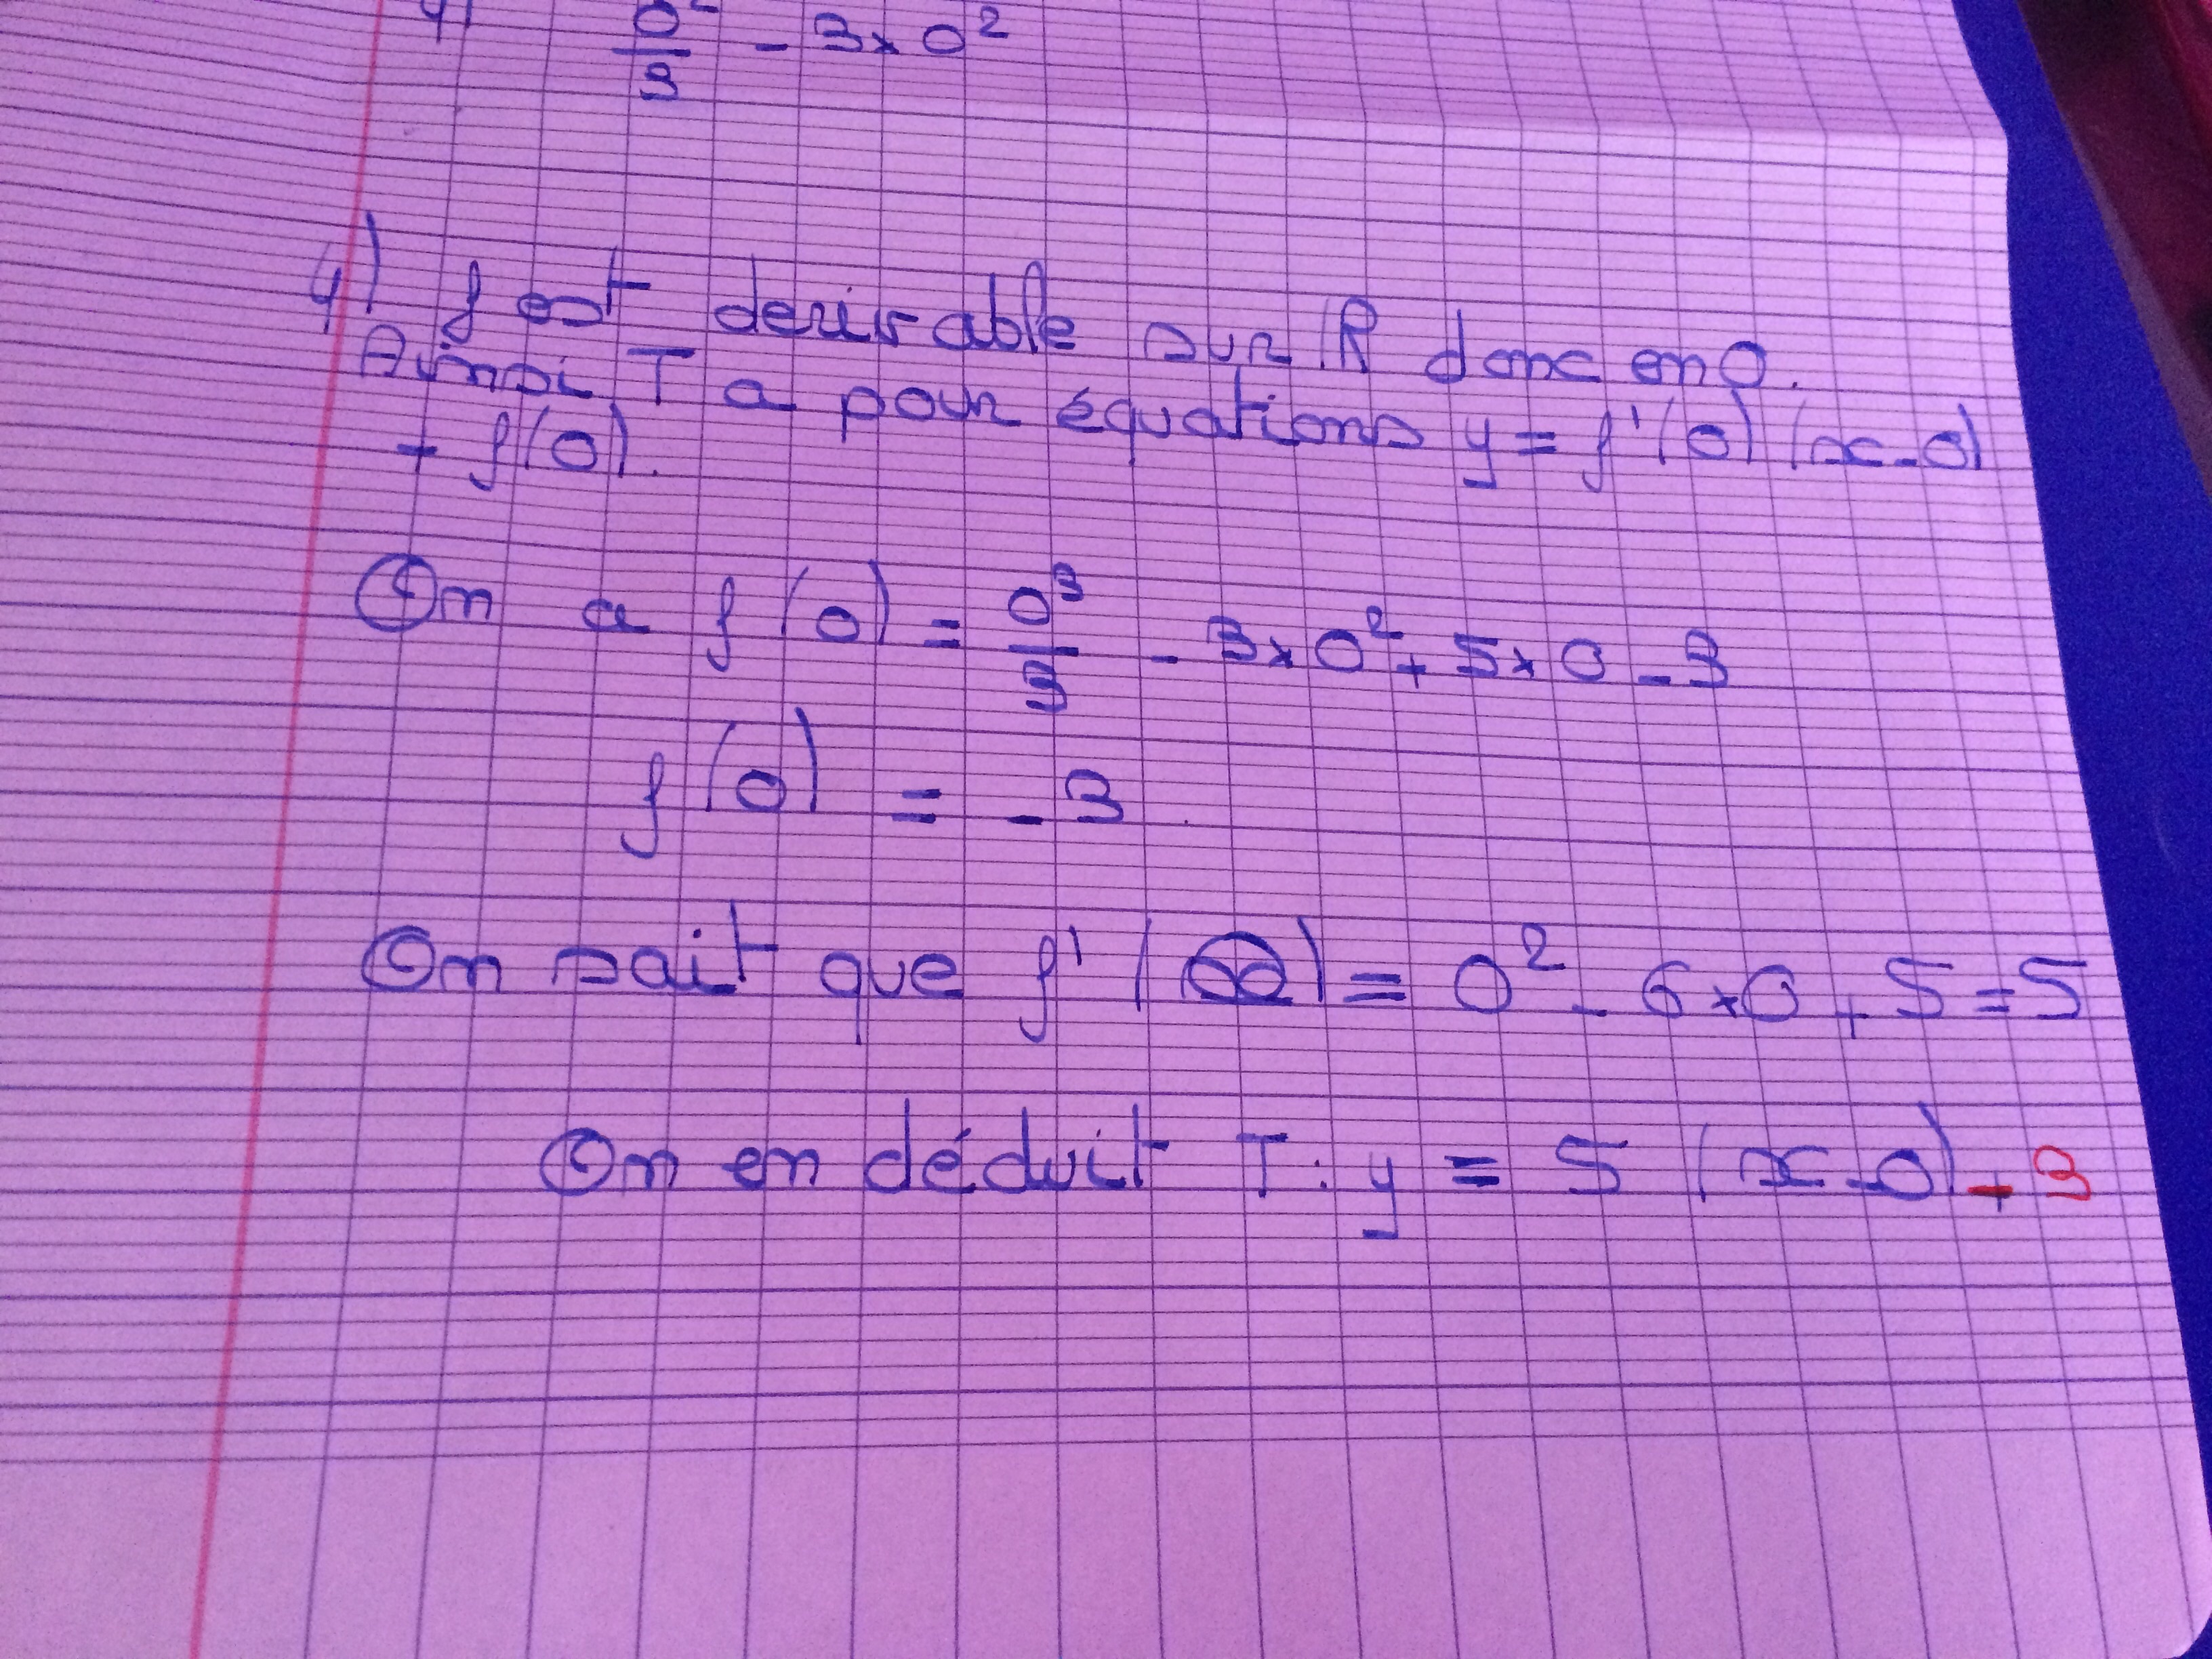 4) 0²/3 - 3×0²
4) f est derivable sur R donc en 0.
Ainsi T a pour équations y = f'(0) (x-0)
+ f(0).
On a f(0) = 0³/3 - 3×0² + 5×0 - 3
f(0) = -3
On sait que f'(0) = 0² - 6×0 + 5 = 5
On en déduit T : y = 5 (x-0) - 3